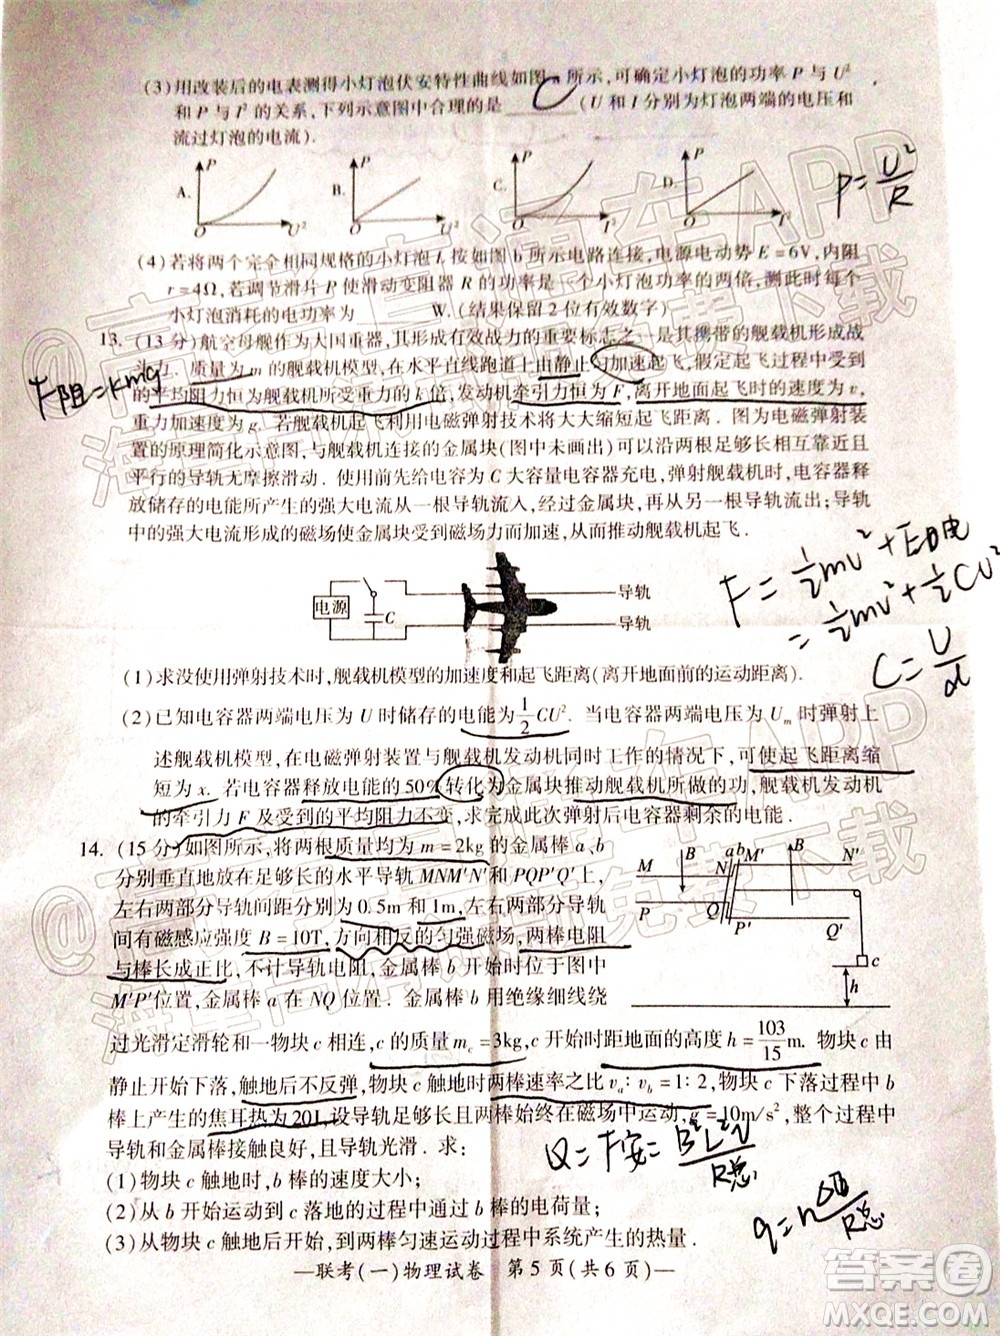 (3)用改装后的电表测得小灯泡伏安特性曲线如图a所示,可确定小灯泡的功率 P 与 U²
和 P 与 I² 的关系,下列示意图中合理的是 C (U 和 I 分别为灯泡两端的电压和
流过灯泡的电流).
A. P O U²
B. P O U²
C. P O I²
D. P O I²
P=U²/R
(4)若将两个完全相同规格的小灯泡 L 按如图 b 所示电路连接,电源电动势 E=6V,内阻
r=4Ω,若调节滑片 P 使滑动变阻器 R 的功率是一个小灯泡功率的两倍,则此时每个
小灯泡消耗的电功率为 W.(结果保留2位有效数字)
13.(13 分)航空母舰作为大国重器,其形成有效战力的重要标志之一是其携带的舰载机形成战
斗力.质量为 m 的舰载机模型,在水平直线跑道上由静止匀加速起飞,假定起飞过程中
F阻=kmg
的平均阻力恒为舰载机所受重力的 k 倍,发动机牵引力恒为 F,离开地面起飞时的速度为 v,
重力加速度为 g.若舰载机起飞利用电磁弹射技术将大大缩短起飞距离.图为电磁弹射装
置的原理简化示意图,与舰载机连接的金属块(图中未画出)可以沿两根足够长相互靠近且
平行的导轨无摩擦滑动.使用前先给电容为 C 大容量电容器充电,弹射舰载机时,电容器释
放储存的电能所产生的强大电流从一根导轨流入,经过金属块,再从另一根导轨流出;导轨
中的强大电流形成的磁场使金属块受到磁场力而加速,从而推动舰载机起飞.
电源 C 导轨
导轨
F=½mv²+E电
=½mv²+½CU²
C=U/d
(1)求没使用弹射技术时,舰载机模型的加速度和起飞距离(离开地面前的运动距离).
(2)已知电容器两端电压为 U 时储存的电能为½CU².当电容器两端电压为 Uₘ 时弹射上
述舰载机模型,在电磁弹射装置与舰载机发动机同时工作的情况下,可使起飞距离缩
短为 x.若电容器释放电能的 50% 转化为金属块推动舰载机所做的功,舰载机发动机
的牵引力 F 及受到的平均阻力不变,求完成此次弹射后电容器剩余的电能.
14.(15 分)如图所示,将两根质量均为 m=2kg 的金属棒 a、b
分别垂直地放在足够长的水平导轨 MNM′N′ 和 PQP′Q′ 上,
左右两部分导轨间距分别为 0.5m 和 1m,左右两部分导轨
间有磁感应强度 B=10T,方向相反的匀强磁场,两棒电阻
与棒长成正比,不计导轨电阻,金属棒 b 开始时位于图中
M′P′位置,金属棒 a 在 NQ 位置.金属棒 b 用绝缘细线绕
M B N ab M′ B N′
P Q P′ Q′ c h
过光滑定滑轮和一物块 c 相连,c 的质量 m꜀=3kg,c 开始时距地面的高度 h=103/15 m.物块 c 由
静止开始下落,触地后不反弹,物块 c 触地时两棒速率之比 vₐ:v_b=1:2,物块 c 下落过程中 b
棒上产生的焦耳热为20J,设导轨足够长且两棒始终在磁场中运动,g=10m/s²,整个过程中
导轨和金属棒接触良好,且导轨光滑.求:
Q=F安=B²L²v/R总
(1)物块 c 触地时,b 棒的速度大小;
(2)从 b 开始运动到 c 落地的过程中通过 b 棒的电荷量;
q=nΔΦ/R总
(3)从物块 c 触地开始,到两棒匀速运动过程中系统产生的热量.
—联考(一)物理试卷 第 5 页(共 6 页)—
@高考直通车APP
海量高清试卷免费下载
@高考直通车APP
海量高清试卷免费下载
答案圈
MXQE.COM